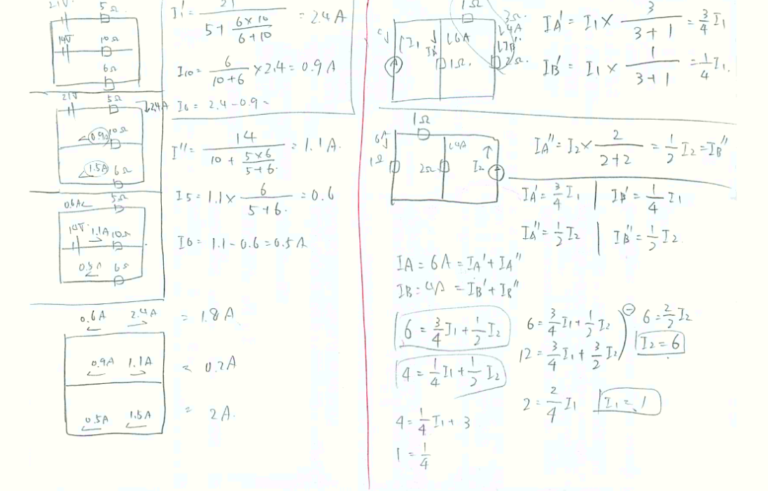 21V 5Ω
14V 10Ω
6Ω
I₁' = 21 / (5 + (6×10)/(6+10)) = 2.4 A
I₁₀ = 6/(10+6) × 2.4 = 0.9 A
21V 5Ω 2.4A
0.9A 10Ω
1.5A 6Ω
I₆ = 2.4 - 0.9 -
I'' = 14 / (10 + (5×6)/(5+6)) = 1.1 A.
I5 = 1.1 × 6/(5+6) = 0.6
I6 = 1.1 - 0.6 = 0.5 A
0.6A 5Ω
14V 1.1A 10Ω
0.5A 6Ω
0.6A 2.4A = 1.8A
0.9A 1.1A = 0.2A
0.5A 1.5A = 2A.
1Ω 3Ω
I₁ 6A 4A
1Ω. 2Ω.
IA' = I₁ × 3/(3+1) = 3/4 I₁
IB' = I₁ × 1/(3+1) = 1/4 I₁.
1Ω
6A 1Ω 2Ω 4A I₂
IA'' = I₂ × 2/(2+2) = 1/2 I₂ = IB''
IA' = 3/4 I₁ | IB' = 1/4 I₁
IA'' = 1/2 I₂ | IB'' = 1/2 I₂
IA = 6A = IA' + IA''
IB = 4A = IB' + IB''
6 = 3/4 I₁ + 1/2 I₂
4 = 1/4 I₁ + 1/2 I₂
4 = 1/4 I₁ + 3
1 = 1/4
6 = 3/4 I₁ + 1/2 I₂
12 = 3/4 I₁ + 3/2 I₂
−
6 = 2/2 I₂
I₂ = 6
2 = 2/4 I₁
I₁ = 1